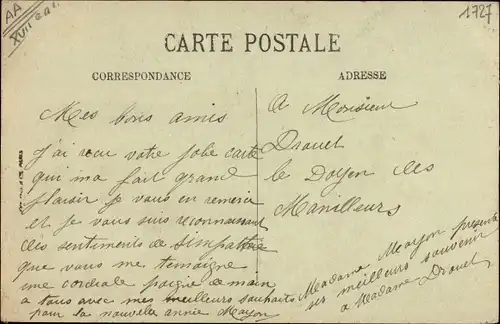 AA
1727
CARTE POSTALE
CORRESPONDANCE
ADRESSE
Mes bons amis
J'ai reçu votre jolie carte
qui ma fait grand
plaisir je vous en remercie
et je vous suis reconnaissant
des sentiments de simpathie
que vous me temoigne
une cordiale poigné de main
a tous avec mes meilleurs souhaits
pour la nouvelle année Mayon
A Monsieur
Drouet
le Doyen des
Manilleurs
Madame Mayon presente
ses meilleurs souvenir
a Madame Drouet